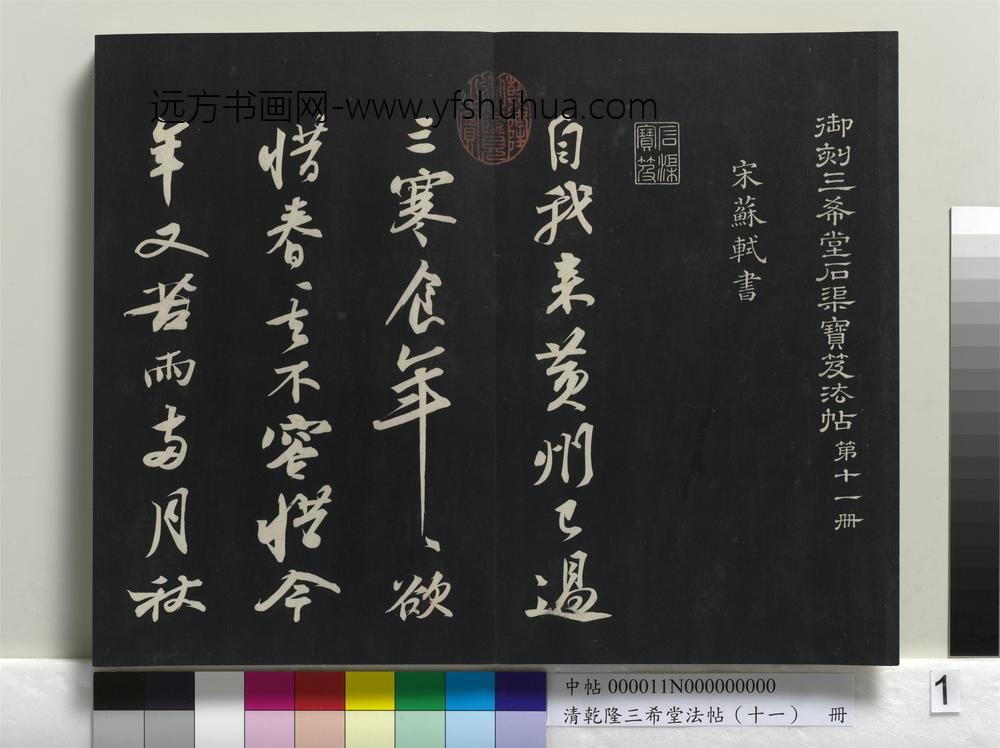 御刻三希堂石渠寶笈法帖 第十一冊
宋蘇軾書
石渠寶笈
自我来黄州已過
三寒食年、欲
惜春、去不容惜今
年又苦雨兩月秋
远方书画网-www.yfshuhua.com
中帖 000011N000000000
清乾隆三希堂法帖（十一） 冊
1